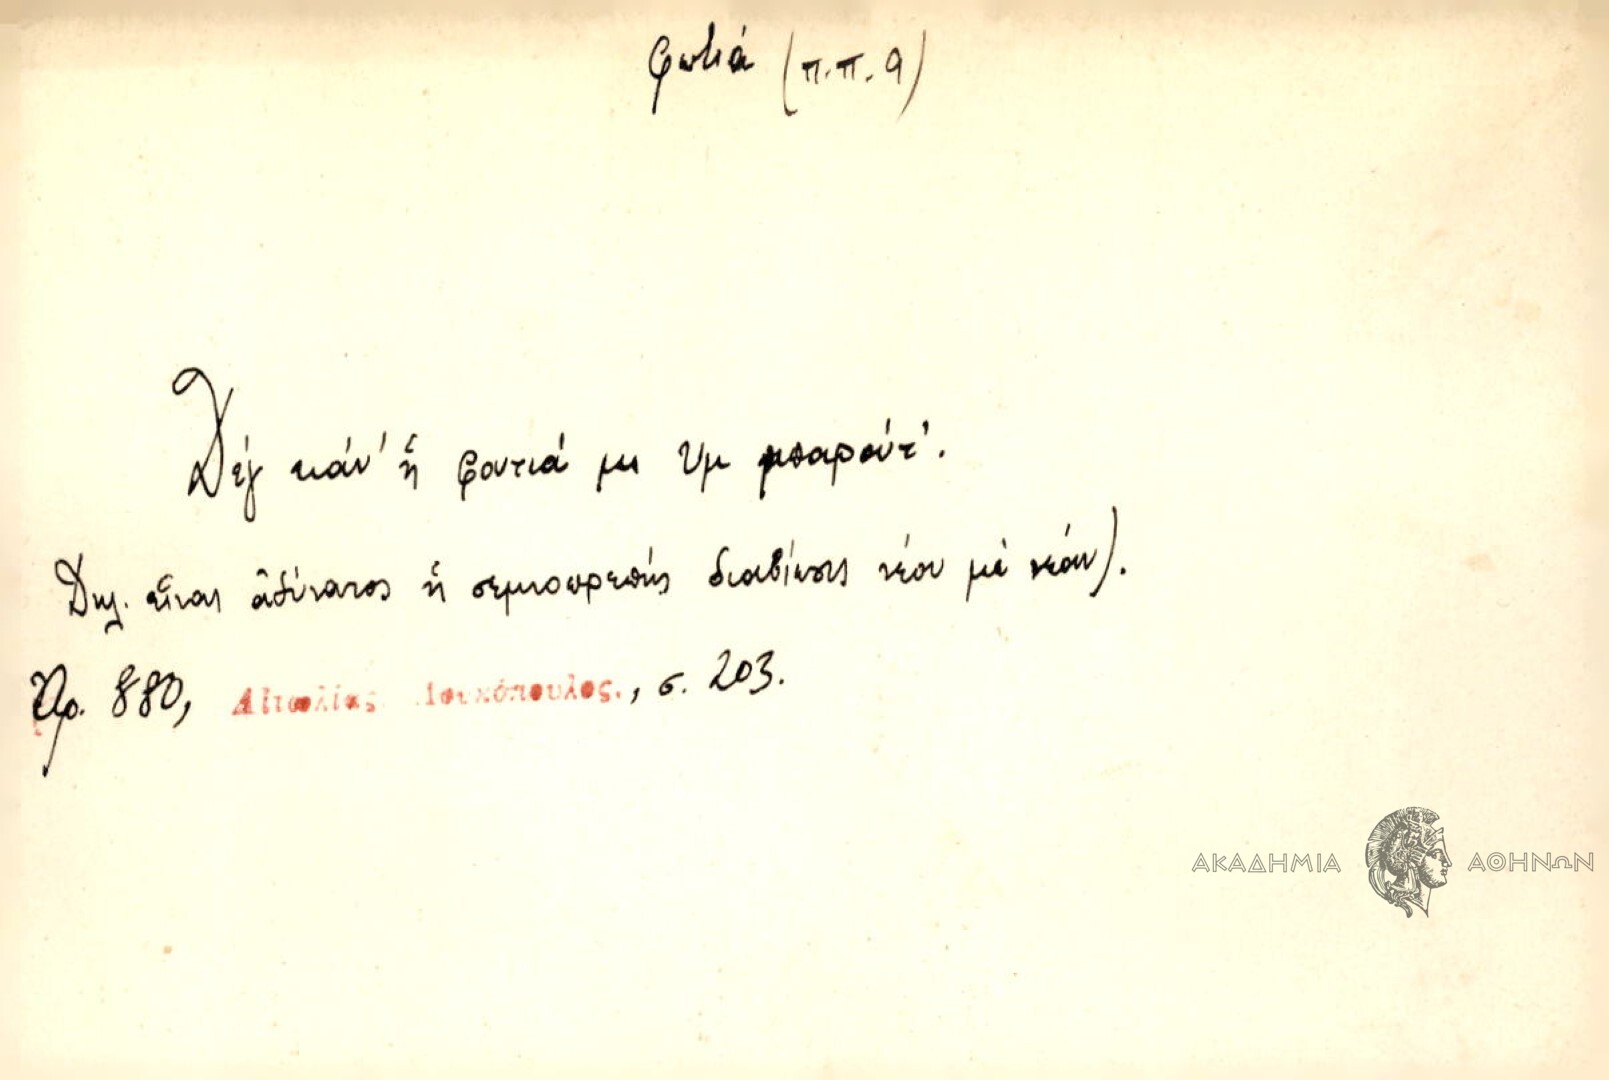 φωτιά (π.π. 9)
Δέγ κάν' ἡ φουτιά μι τ'μ μπαρούτ'.
Δηλ. εἶναι ἀδύνατος ἡ σεμνοπρεπής διαβίωσις νέου μέ νέαν).
Ἀρ. 880, Αἰτωλίας Λουκόπουλος, σ. 203.
ΑΚΑΔΗΜΙΑ ΑΘΗΝΩΝ